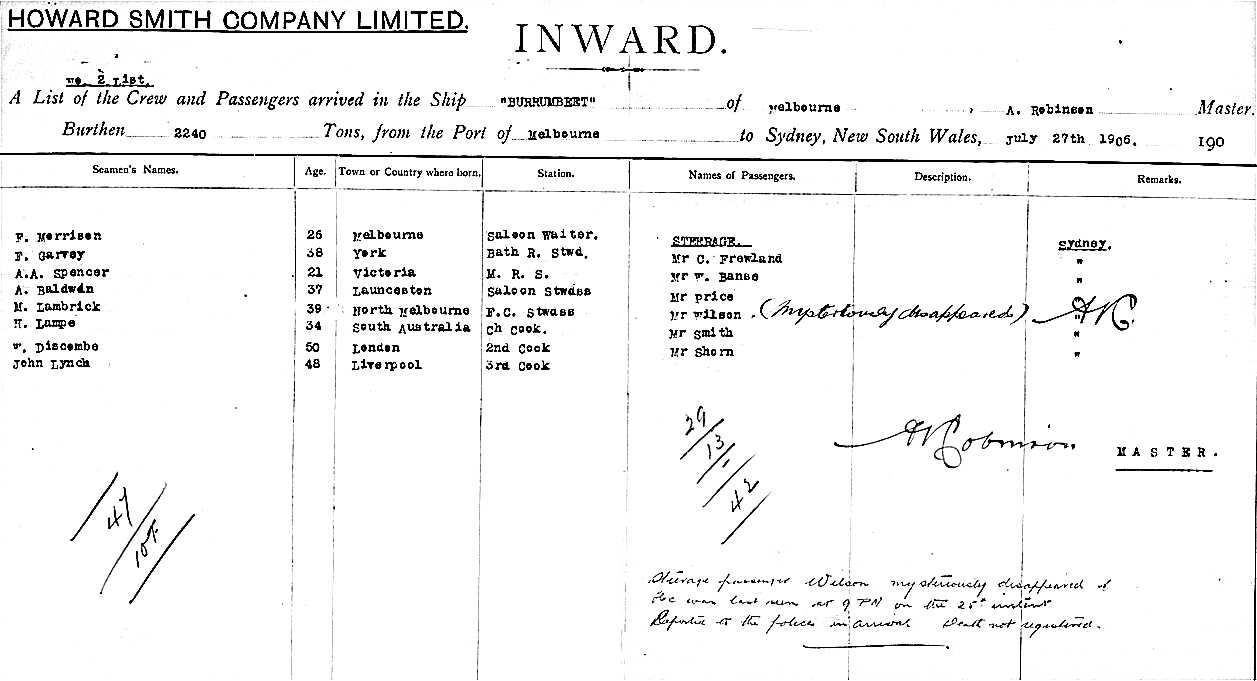 HOWARD SMITH COMPANY LIMITED.
INWARD.
No. 2 List.
A List of the Crew and Passengers arrived in the Ship "BURRUMBEET" of Melbourne , A. Robinson Master.
Burthen 2240 Tons, from the Port of Melbourne to Sydney, New South Wales, July 27th 1906. 190
Seamen's Names. Age. Town or Country where born. Station. Names of Passengers. Description. Remarks.
F. Morrison 26 Melbourne Saloon Waiter.
STEERAGE. Sydney.
F. Garvey 38 York Bath R. Stwd.
Mr C. Frewland "
A.A. Spencer 21 Victoria M. R. S.
Mr W. Banse "
A. Baldwin 37 Launceston Saloon Stwdss
Mr price
M. Lambrick 39 North Melbourne F.C. Stwdss
Mr Wilson . (Mysteriously disappeared) AR. "
H. Lampe 34 South Australia Ch Cook.
Mr Smith "
W. Discombe 50 London 2nd Cook
Mr Shorn "
John Lynch 48 Liverpool 3rd Cook
29
13
42
A Robinson MASTER.
47
Steerage passenger Wilson mysteriously disappeared
He was last seen at 9 PM on the 25th instant
Reported to the police on arrival Death not registered.